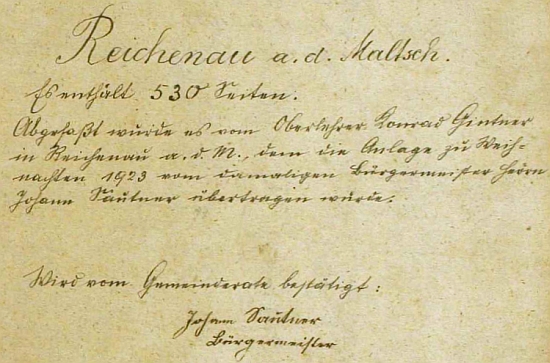 Reichenau a. d. Maltsch.
Es enthält 530 Seiten.
Abgefaßt wurde es vom Oberlehrer Konrad Gintner
in Reichenau a. d. M., dem die Anlage zu Weih-
nachten 1923 vom damaligen Bürgermeister Herrn
Johann Sautner übertragen wurde.
Wird vom Gemeinderate bestätigt:
Johann Sautner
Bürgermeister